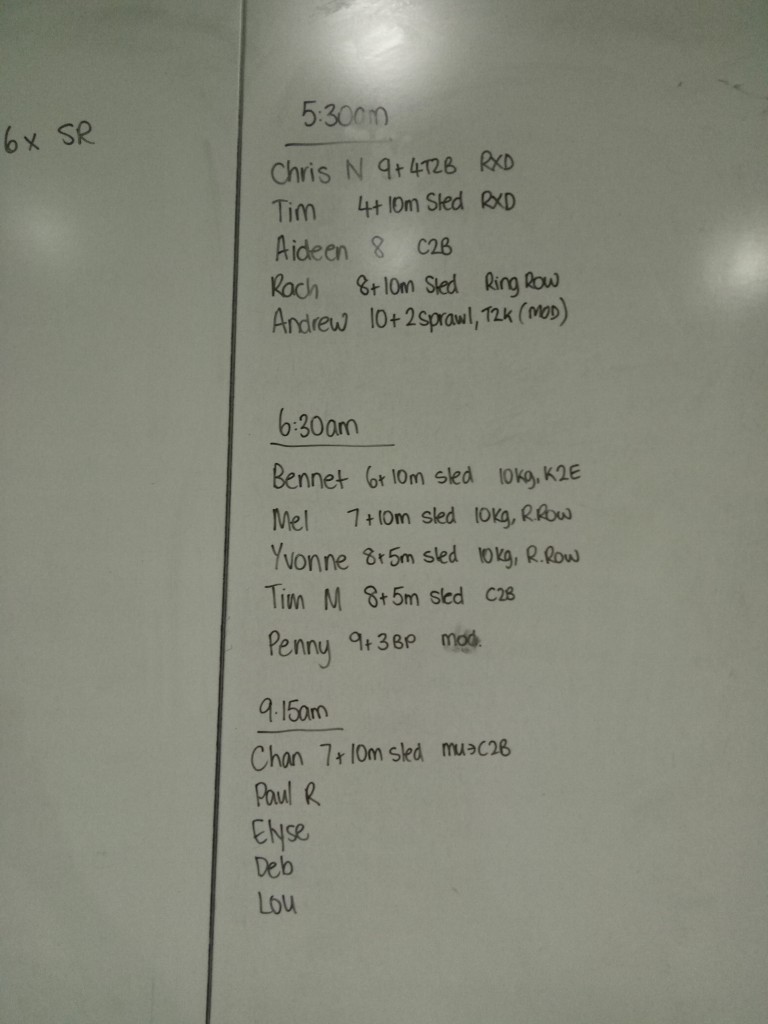 6x SR
5:30am
Chris N 9+4T2B RXD
Tim 4+10m Sled RXD
Aideen 8 C2B
Rach 8+10m Sled Ring Row
Andrew 10+2 Sprawl, T2K (MOD)
6:30am
Bennet 6+10m sled 10kg, K2E
Mel 7+10m sled 10kg, R.Row
Yvonne 8+5m sled 10kg, R.Row
Tim M 8+5m sled C2B
Penny 9+3BP mod.
9.15am
Chan 7+10m sled mu→C2B
Paul R
Elyse
Deb
Lou